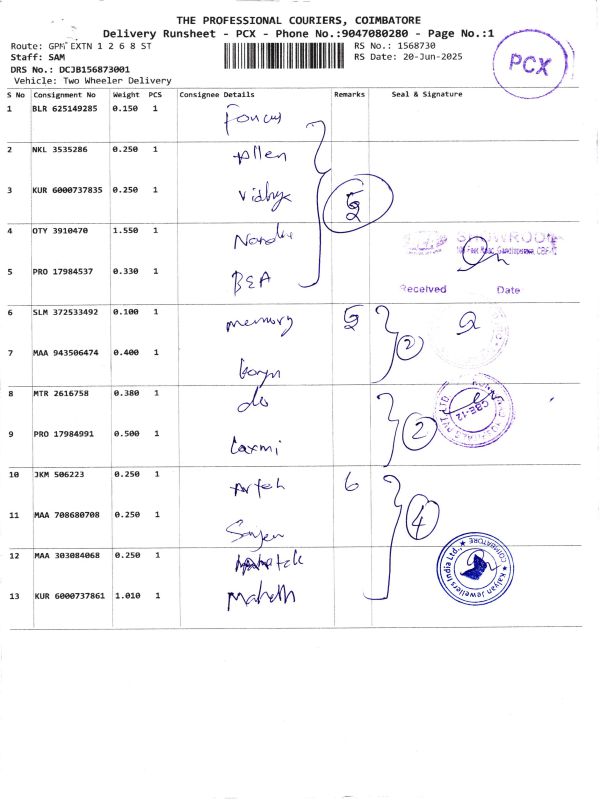 THE PROFESSIONAL COURIERS, COIMBATORE
Delivery Runsheet - PCX - Phone No.:9047080280 - Page No.:1
Route: GPM EXTN 1 2 6 8 ST
RS No.: 1568730
Staff: SAM
RS Date: 20-Jun-2025
DRS No.: DCJB156873001
Vehicle: Two Wheeler Delivery
PCX
S No Consignment No Weight PCS Consignee Details Remarks Seal & Signature
1 BLR 625149285 0.150 1
2 NKL 3535286 0.250 1 Allen
3 KUR 6000737835 0.250 1 Vidhya
5
4 OTY 3910470 1.550 1
SHOWROOM
5 PRO 17984537 0.330 1 B&A
Received Date
6 SLM 372533492 0.100 1 memory 5
2
7 MAA 943506474 0.400 1
8 MTR 2616758 0.380 1 do
CBE-12
2
9 PRO 17984991 0.500 1 Laxmi
10 JKM 506223 0.250 1 6
4
11 MAA 708680708 0.250 1
12 MAA 303084068 0.250 1
COIMBATORE
Kalyan Jewellers India Ltd.
13 KUR 6000737861 1.010 1